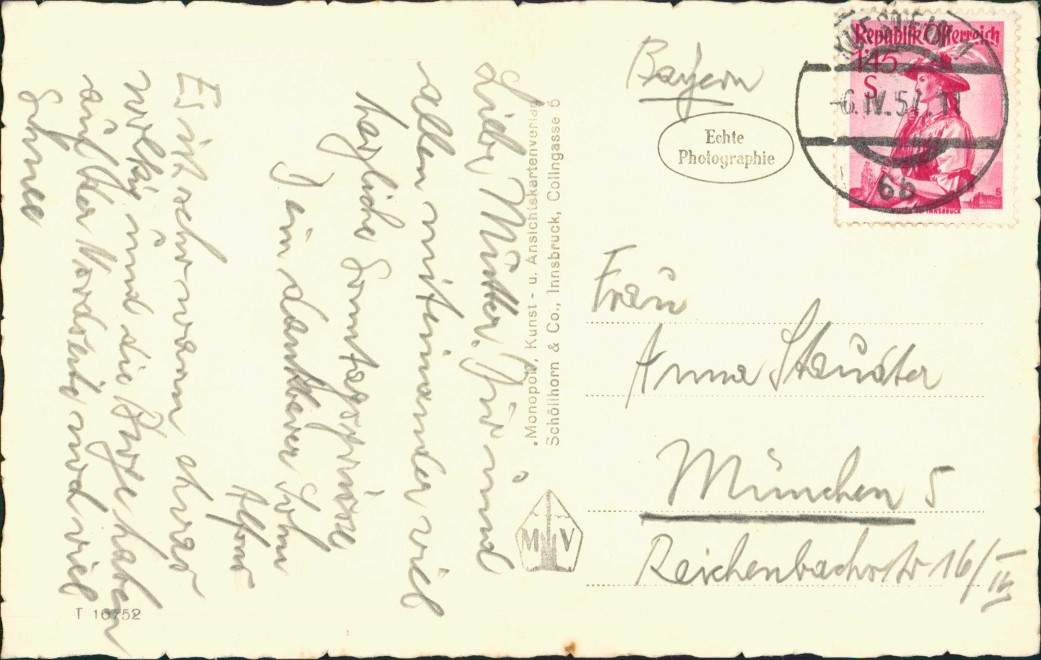 Liebe Mutter. Dir und
allen miteinander viel
herzliche Sonntagsgrüsse
Dein dankbarer Sohn
Alfons
Es ist sehr warm etwas
wolkig und die Berge haben
auf der Nordseite noch viel
Schnee
T 16752
"Monopol", Kunst- u. Ansichtskartenverlag
Schöllhorn & Co., Innsbruck, Collingasse 6
M V
Bayern
Echte
Photographie
Republik Österreich
1'45
S
KUFSTEIN
-6.IV.57.
6b
INNSBRUCK
Frau
Anna Stauder
München 5
Reichenbachstr 16/IV